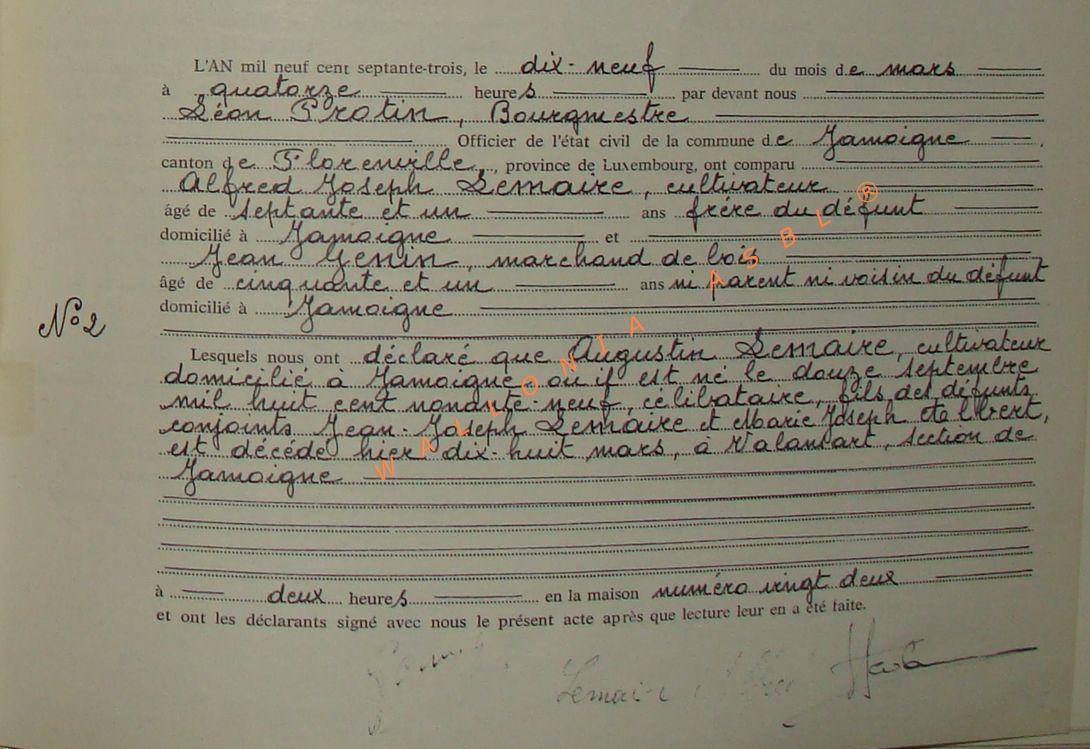 L'AN mil neuf cent septante-trois, le dix-neuf du mois de mars
à quatorze heures par devant nous
Léon Protin, Bourgmestre
Officier de l'état civil de la commune de Jamoigne
canton de Florenville, province de Luxembourg, ont comparu
Alfred Joseph Lemaire, cultivateur
âgé de septante et un ans frère du défunt
domicilié à Jamoigne et
Jean Genin, marchand de bois
âgé de cinquante et un ans ni parent ni voisin du défunt
domicilié à Jamoigne
N°2
Lesquels nous ont déclaré que Augustin Lemaire, cultivateur
domicilié à Jamoigne, où il est né le douze septembre
mil huit cent nonante-neuf, célibataire, fils des défunts
conjoints Jean-Joseph Lemaire et Marie Joseph
est décédé hier dix-huit mars, à Valansart, section de
Jamoigne
à deux heures en la maison numéro vingt deux
et ont les déclarants signé avec nous le présent acte après que lecture leur en a été faite.
Lemaire
WALLONIA ASBL ®